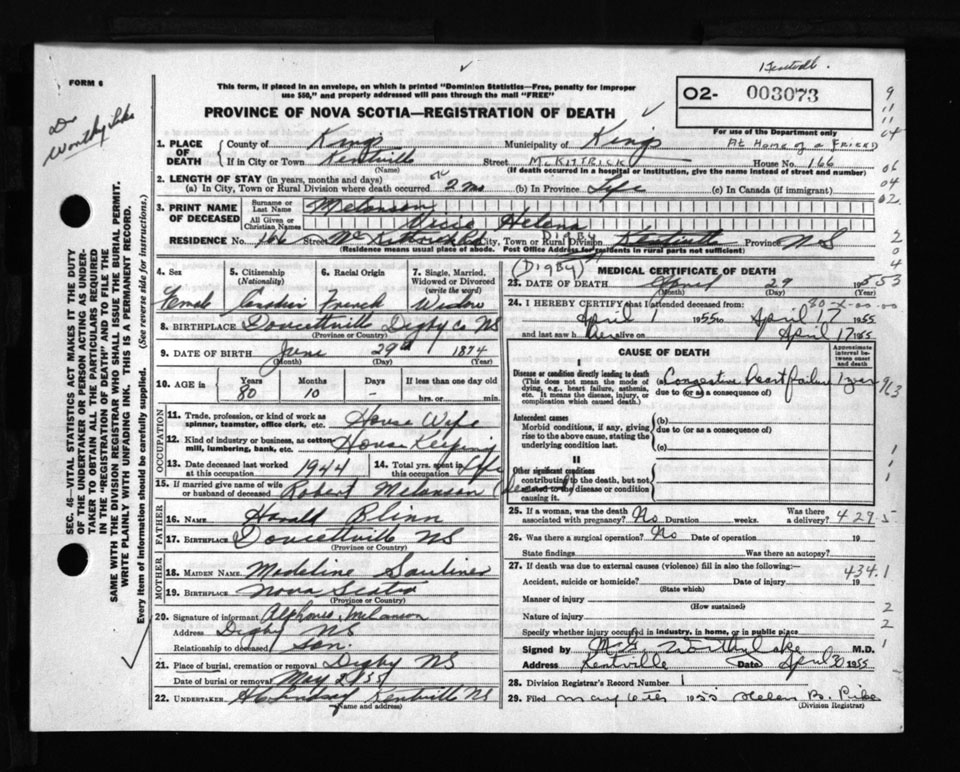 Kentville.
FORM 6
This form, if placed in an envelope, on which is printed "Dominion Statistics—Free, penalty for improper
use $50," and properly addressed will pass through the mail "FREE"
PROVINCE OF NOVA SCOTIA—REGISTRATION OF DEATH
02- 003073
For use of the Department only
At Home of a Friend
Dr Worthylake
1. PLACE OF DEATH
County of Kings Municipality of Kings
If in City or Town Kentville Street McKittrick House No. 166
(Name) (If death occurred in a hospital or institution, give name instead of street and number)
2. LENGTH OF STAY (in years, months and days)
(a) In City, Town or Rural Division where death occurred 2 mo (b) In Province Life (c) In Canada (if immigrant)
3. PRINT NAME OF DECEASED
Surname or Last Name Melanson
All Given or Christian Names Helena
RESIDENCE No. 166 Street City, Town or Rural Division Digby Kentville Province NS
(Residence means usual place of abode. Post Office Address for residents in rural parts not sufficient)
(Digby)
4. Sex 5. Citizenship (Nationality) 6. Racial Origin 7. Single, Married, Widowed or Divorced (write the word)
Female Canadian French Widow
8. BIRTHPLACE Doucettville Digby Co NS
(Province or Country)
9. DATE OF BIRTH June 29th 1874
(Month) (Day) (Year)
10. AGE IN Years Months Days If less than one day old
80 10 - hrs. or min.
OCCUPATION
11. Trade, profession, or kind of work as spinner, teamster, office clerk, etc. House Wife
12. Kind of industry or business, as cotton mill, lumbering, bank, etc. House Keeping
13. Date deceased last worked at this occupation 1944 14. Total yrs. spent in this occupation Life
15. If married give name of wife or husband of deceased Robert Melanson (deceased)
FATHER
16. NAME Harald Blinn
17. BIRTHPLACE Doucettville NS
(Province or Country)
MOTHER
18. MAIDEN NAME Madeline Saulnier
19. BIRTHPLACE Nova Scotia
(Province or Country)
20. Signature of informant Alphonse Melanson
Address Digby NS
Relationship to deceased Son.
21. Place of burial, cremation or removal Digby NS
Date of burial or removal May 2 1955
22. UNDERTAKER H C Lindsay Kentville NS
(Name and address)
MEDICAL CERTIFICATE OF DEATH
23. DATE OF DEATH April 29 1955
(Month) (Day)
24. I HEREBY CERTIFY that I attended deceased from:
April 1 1955 to April 17 1955
and last saw her alive on April 17 1955
CAUSE OF DEATH
Approximate interval between onset and death
I
Disease or condition directly leading to death
(This does not mean the mode of dying, e.g., heart failure, asthenia, etc. It means the disease, injury, or complication which caused death.)
(a) Congestive heart failure 1 year
due to (or as a consequence of)
Antecedent causes
Morbid conditions, if any, giving rise to the above cause, stating the underlying condition last.
(b)
due to (or as a consequence of)
(c)
II
Other significant conditions contributing to the death, but not related to the disease or condition causing it.
25. If a woman, was the death associated with pregnancy? No Duration weeks. Was there a delivery?
429.5
26. Was there a surgical operation? No Date of operation 19
State findings Was there an autopsy?
27. If death was due to external causes (violence) fill in also the following:—
434.1
Accident, suicide or homicide? Date of injury 19
(State which)
Manner of injury
(How sustained)
Nature of injury
Specify whether injury occurred in industry, in home, or in public place
Signed by Worthylake M.D.
Address Kentville Date April 30 1955
28. Division Registrar's Record Number 1
29. Filed May 6th 1955 Helen B. Pike
(Division Registrar)
SEC. 46—VITAL STATISTICS ACT MAKES IT THE DUTY
OF THE UNDERTAKER OR PERSON ACTING AS UNDER-
TAKER TO OBTAIN ALL THE PARTICULARS REQUIRED
IN THE "REGISTRATION OF DEATH" AND TO FILE THE
SAME WITH THE DIVISION REGISTRAR WHO SHALL ISSUE THE BURIAL PERMIT.
WRITE PLAINLY WITH UNFADING INK. THIS IS A PERMANENT RECORD.
Every item of information should be carefully supplied. (See reverse side for instructions.)